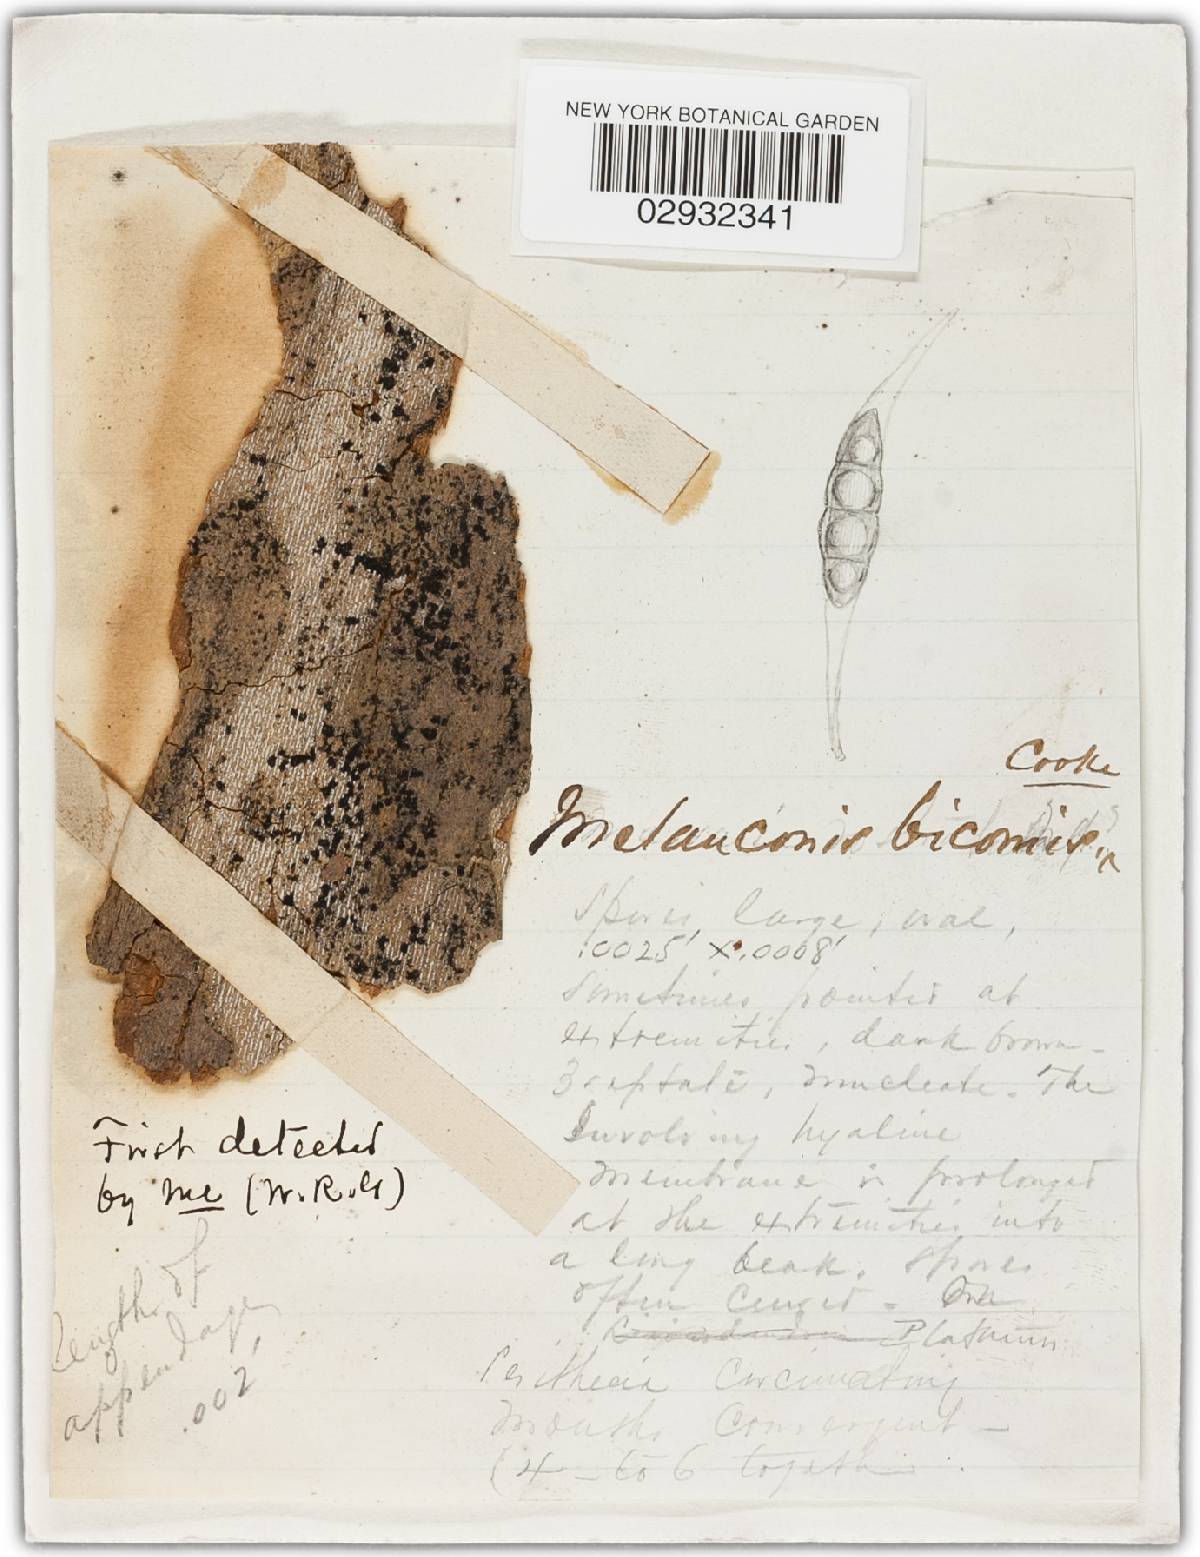 NEW YORK BOTANICAL GARDEN
02932341
Cooke
Melanconis bicornis
Spores large, oval,
.0025' x .0008'
sometimes pointed at
extremities, dark brown -
3 septate, nucleate. The
Involving hyaline
membrane is prolonged
at the extremities into
a long beak. Spores
often curved - On
Platanus
Perithecia circinating
mouths convergent -
(4 - to 6 together
First detected
by me (W.R.G)
Length of
appendages
.002'